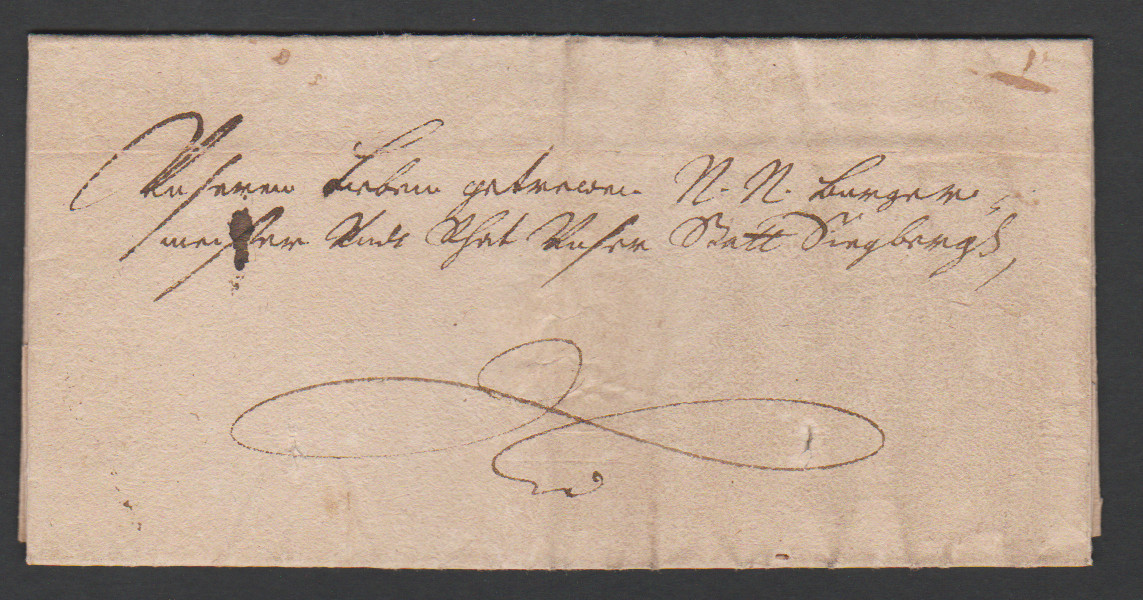 Unseren Lieben getrewen N. N. Burger,
meister Undt Rhat Unser Statt Siegbergh,